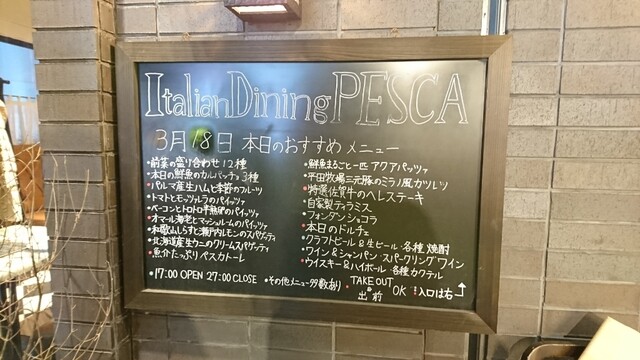 Italian Dining PESCA
3月18日 本日のおすすめ メニュー
・前菜の盛り合わせ12種
・本日の鮮魚のカルパッチョ3種
・パルマ産生ハムと季節のフルーツ
・トマトとモッツァレラのパイッツァ
・ベーコンとトロトロ半熟卵のパイッツァ
・オマール海老とマッシュルームのパイッツァ
・和歌山しらすと瀬戸内レモンのスパゲティ
・北海道産生ウニのクリームスパゲッティ
・魚介たっぷりペスカトーレ
・鮮魚まるごと一匹 アクアパッツァ
・平田牧場三元豚のミラノ風カツレツ
・特選佐賀牛のヘレステーキ
・自家製ティラミス
・フォンダンショコラ
・本日のドルチェ
・クラフトビール & 生ビール・各種 焼酎
・ワイン & シャンパン・スパークリングワイン
・ウイスキー & ハイボール・各種カクテル
・17:00 OPEN 27:00 CLOSE
・その他メニュー多数あり
・TAKE OUT
出前
OK
入口は右↑